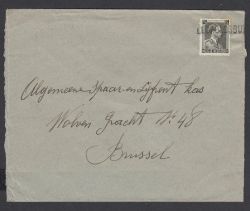 Algemeene Spaar en Lijfrent kas
Wolven Gracht Nr 48
Brussel